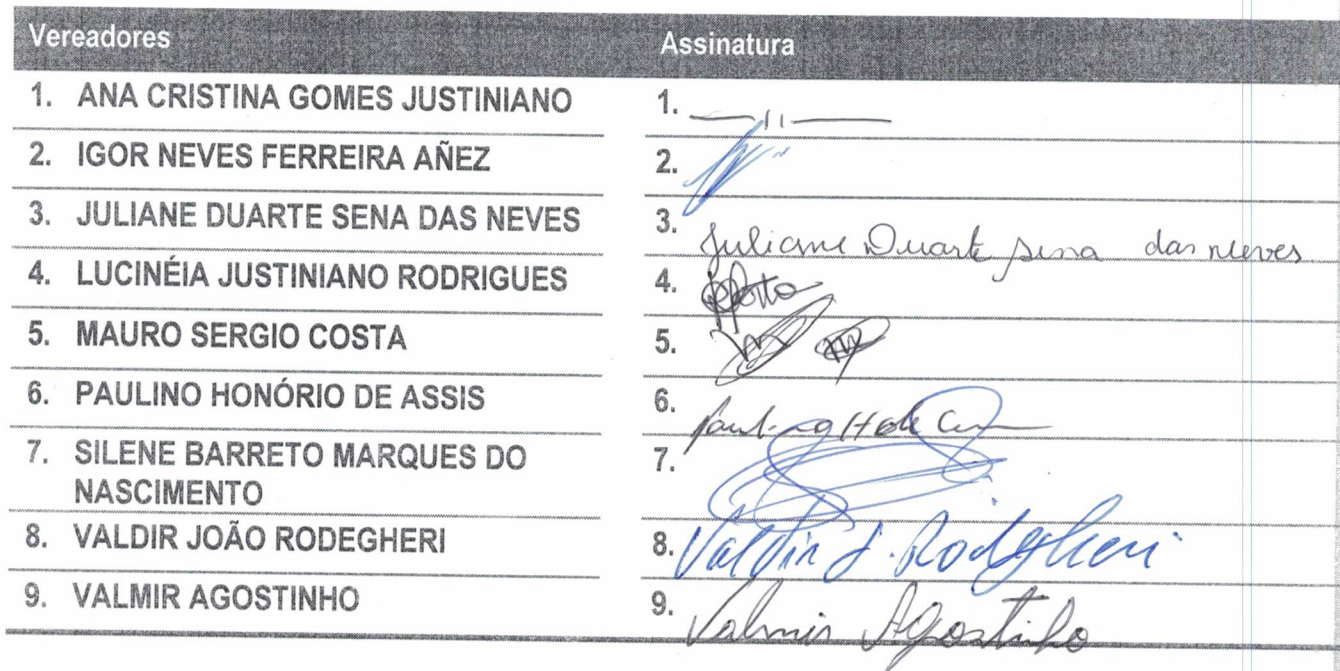 Vereadores Assinatura
1. ANA CRISTINA GOMES JUSTINIANO 1. —11—
2. IGOR NEVES FERREIRA AÑEZ 2.
3. JULIANE DUARTE SENA DAS NEVES 3. Juliane Duarte Sena das neves
4. LUCINÉIA JUSTINIANO RODRIGUES 4.
5. MAURO SERGIO COSTA 5.
6. PAULINO HONÓRIO DE ASSIS 6.
7. SILENE BARRETO MARQUES DO 7.
NASCIMENTO
8. VALDIR JOÃO RODEGHERI 8. Valdir J. Rodegheri
9. VALMIR AGOSTINHO 9. Valmir Agostinho